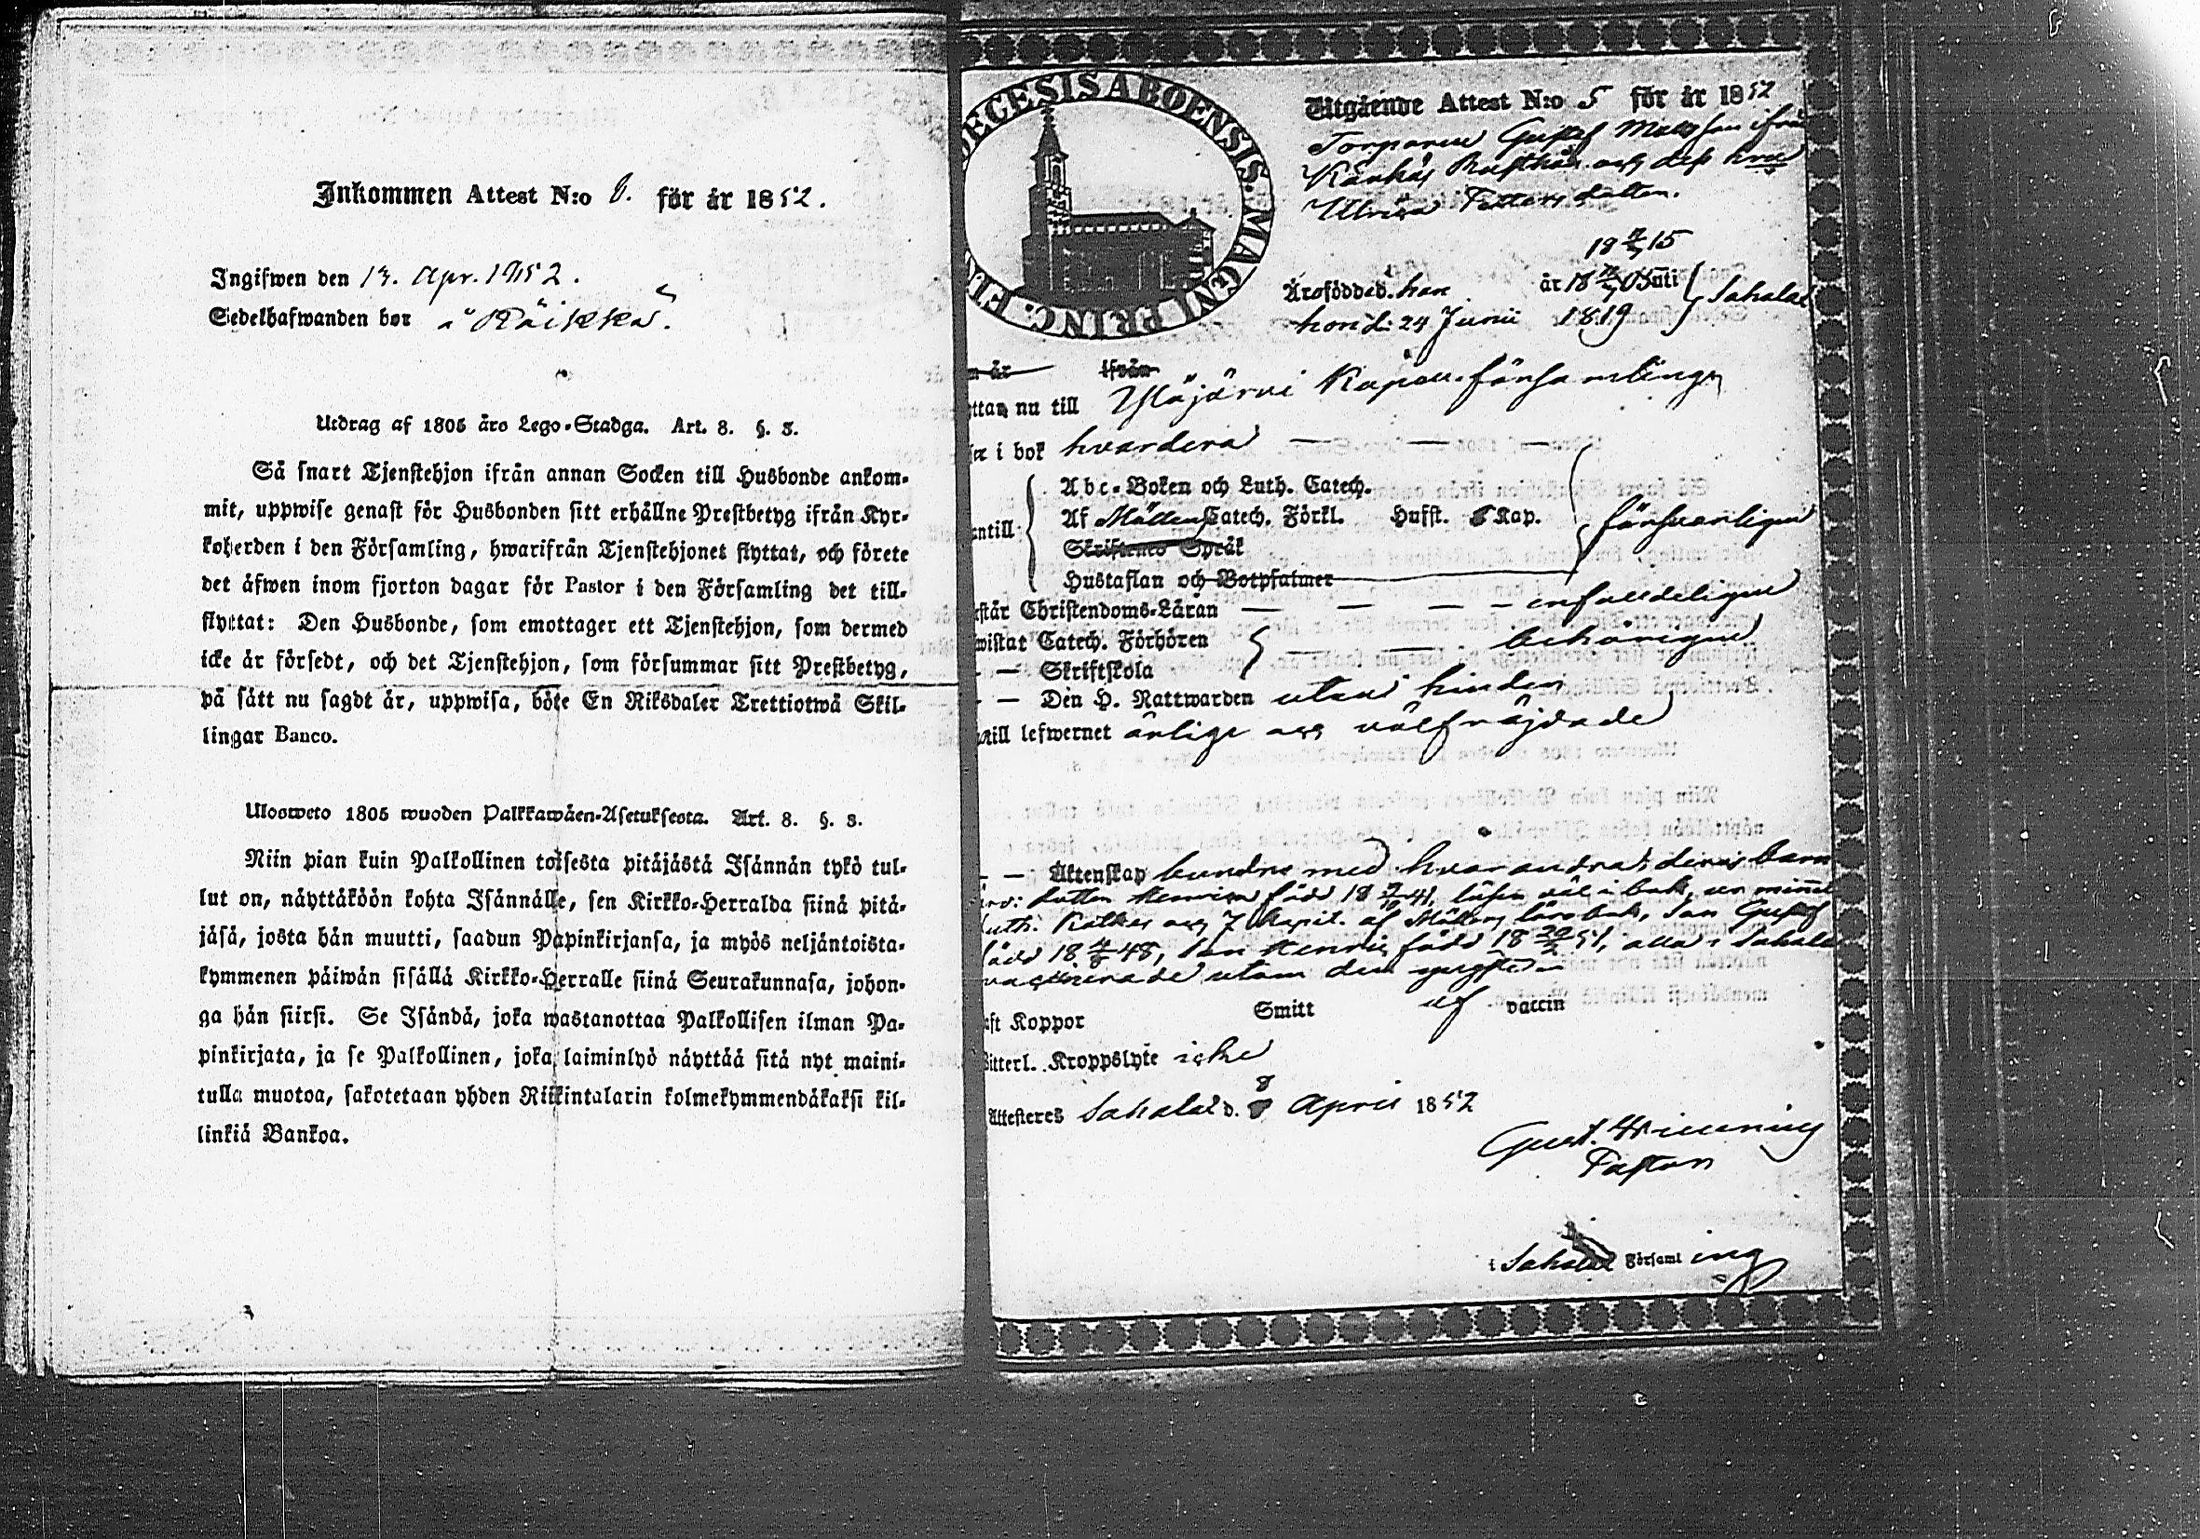 Inkommen Attest N:o 8. för år 1852.
Ingifwen den 13. Apr. 1852.
Sedelhafwanden bor å Räikkä.
Utdrag af 1805 års Lego-Stadga. Art. 8. §. 3.
Så snart Tjenstehjon ifrån annan Socken till Husbonde ankom-
mit, uppwise genast för Husbonden sitt erhållne Prestbetyg ifrån Kyr-
koherden i den Församling, hwarifrån Tjenstehjonet flyttat, och förete
det äfwen inom fjorton dagar för Pastor i den Församling det till-
flyttat: Den Husbonde, som emottager ett Tjenstehjon, som dermed
icke är försedt, och det Tjenstehjon, som försummar sitt Prestbetyg,
på sätt nu sagdt är, uppwisa, böte En Riksdaler Trettiotwå Skil-
lingar Banco.
Ulosweto 1805 wuoden Palkkawäen-Asetuksesta. Art. 8. §. 3.
Niin pian kuin Palkollinen toisesta pitäjästä Isännän tykö tul-
lut on, näyttäköön kohta Isännälle, sen Kirkko-Herralda siinä pitä-
jäsä, josta hän muutti, saadun Papinkirjansa, ja myös neljäntoista-
kymmenen päiwän sisällä Kirkko-Herralle siinä Seurakunnasa, johon-
ga hän siirsi. Se Isändä, joka wastanottaa Palkollisen ilman Pa-
pinkirjata, ja se Palkollinen, joka laiminlyö näyttää sitä nyt maini-
tulla muotoa, sakotetaan yhden Riikintalarin kolmekymmendäkaksi kil-
linkiä Bankoa.
DEGESIS ABOENSIS. MAGNI PRINC. FIN
Utgående Attest N:o 5 för år 1852
Torparen Gustaf Mattsson ifrån
Rusthåll och dess hru
Ulrica Pettersdotter.
15
Äro födde d. han år 18 uti Sahalax
hon d: 24 Junii 1819
n är ifrån
ttar nu till Ylöjärvi Kapell församling
er i bok hvardera
Abc-Boken och Luth. Catech.
ntill Af Möllers Catech. Förkl. Hufst. 8 Kap. försvarligen
Skriftenes Språk
Hustaflan och Botpsalmer
står Christendoms-Läran enfaldeligen
wistat Catech. Förhören behörigen
— Skriftskola
— Den H. Nattwarden utan hinder
till lefwernet ärlige och välfräjdade
— Äktenskap bundne med hvarandra; deras barn
dotter Henrica född 18 41, läser väl i bok, ur minnet
Luth. Katkes och 7 Kapit. af Möllers lärobok, Son Gustaf
född 18 48, Son Henric född 18 51, alla i Sahalax
vaccinerade utom den yngste
ft Koppor Smitt af vaccin
itterl. Kroppslyte icke
Attesteres Sahalax d. 8 April 1852
Gust.
Pastor
i Sahalax Församling